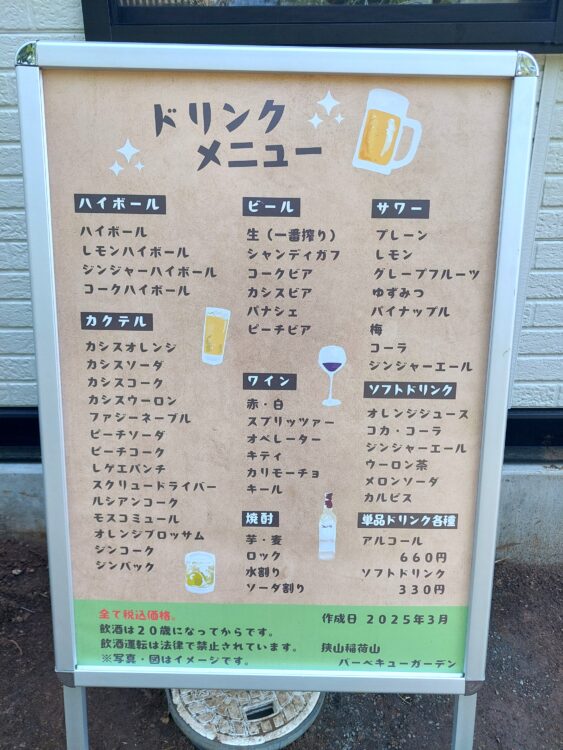 ドリンク
メニュー
ハイボール
ハイボール
レモンハイボール
ジンジャーハイボール
コークハイボール
カクテル
カシスオレンジ
カシスソーダ
カシスコーク
カシスウーロン
ファジーネーブル
ピーチソーダ
ピーチコーク
レゲエパンチ
スクリュードライバー
ルシアンコーク
モスコミュール
オレンジブロッサム
ジンコーク
ジンバック
ビール
生（一番搾り）
シャンディガフ
コークビア
カシスビア
パナシェ
ピーチビア
ワイン
赤・白
スプリッツァー
オペレーター
キティ
カリモーチョ
キール
焼酎
芋・麦
ロック
水割り
ソーダ割り
サワー
プレーン
レモン
グレープフルーツ
ゆずみつ
パイナップル
梅
コーラ
ジンジャーエール
ソフトドリンク
オレンジジュース
コカ・コーラ
ジンジャーエール
ウーロン茶
メロンソーダ
カルピス
単品ドリンク各種
アルコール
６６０円
ソフトドリンク
３３０円
全て税込価格。
飲酒は２０歳になってからです。
飲酒運転は法律で禁止されています。
※写真・図はイメージです。
作成日 ２０２５年３月
狭山稲荷山
バーベキューガーデン